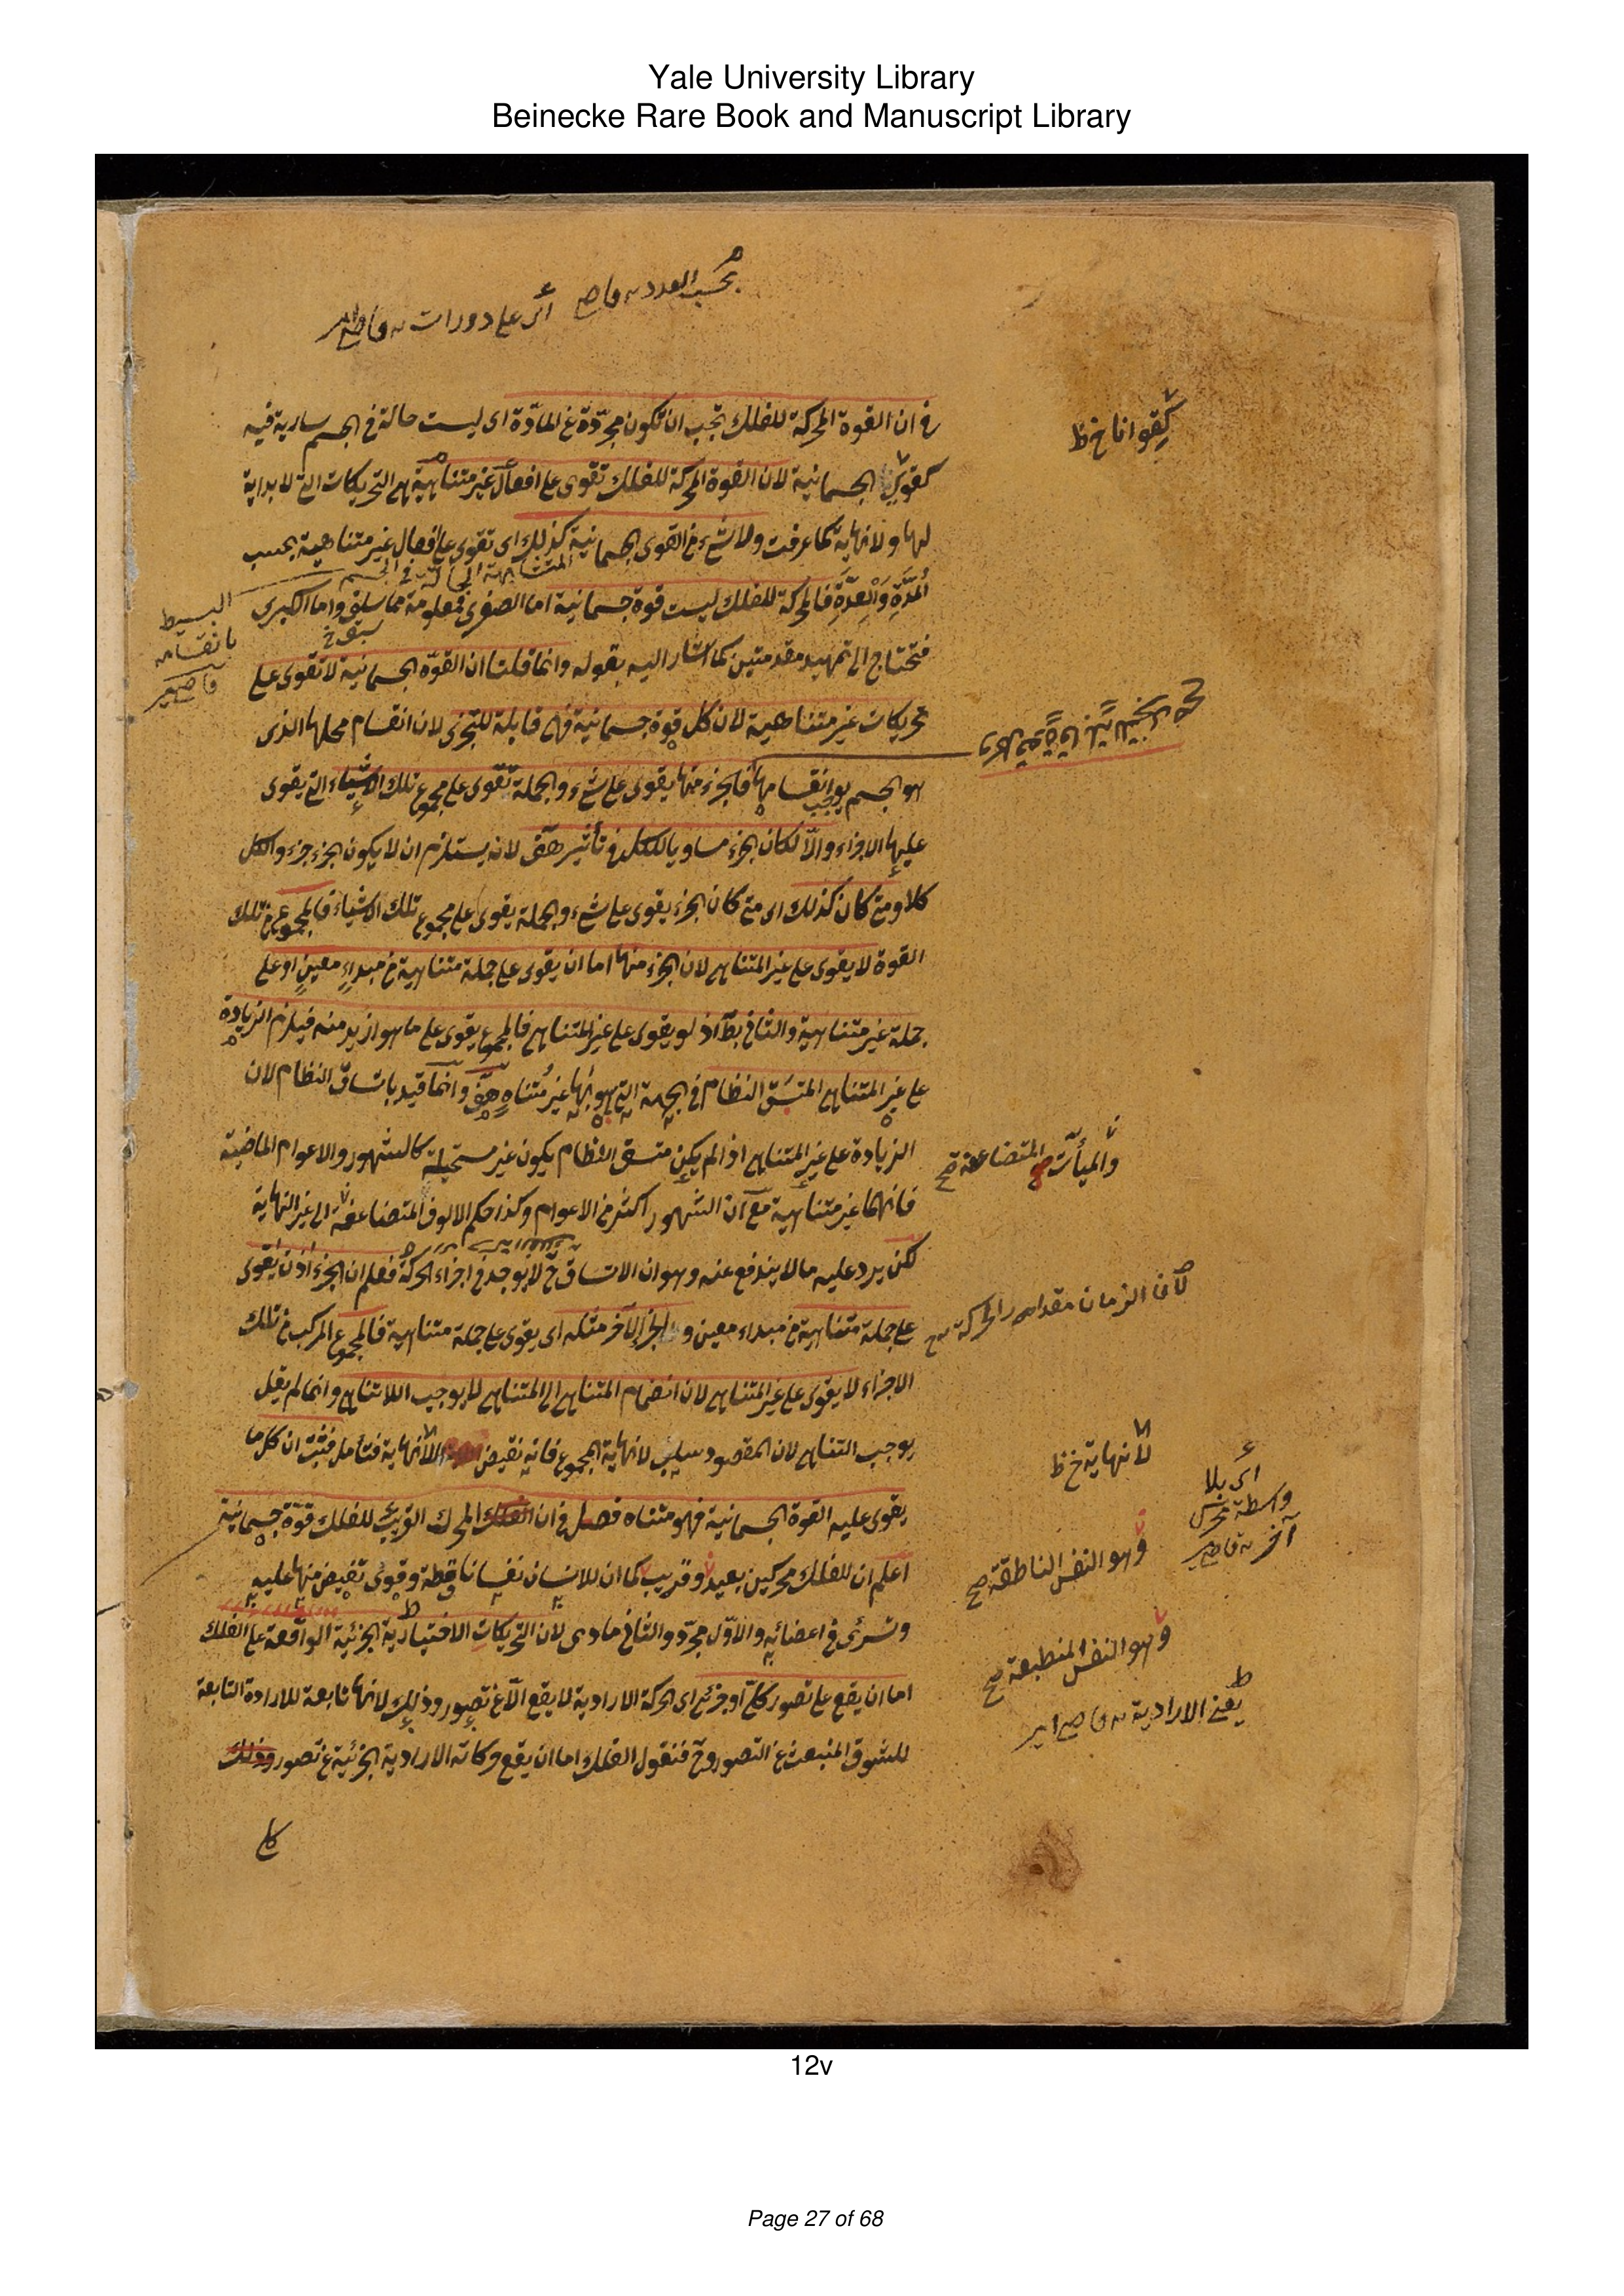 Yale University Library
Beinecke Rare Book and Manuscript Library
بحسب العدد
اى على دورات
فى ان القوة المحركة للفلك يجب ان تكون مجردة عن المادة اى ليست حالة فى الجسم سارية فيه
كقوى الجسمانية لان القوة المحركة للفلك تقوى على افعال غير متناهية هى التحريكات التى لا بداية
لها ولا نهاية كما عرفت ولا شىء من القوى الجسمانية كذلك اى تقوى على افعال غير متناهية بحسب
المتشابهة الحالة فى الجسم
المُدَّةِ وَالْعِدَّةِ فالمحركة للفلك ليست قوة جسمانية اما الصغرى فمعلومة مما سلف واما الكبرى
البسيط
بانقسامه
سبق خ
فتحتاج الى تمهيد مقدمتين كما اشار اليه بقوله وانما قلنا ان القوّة الجسمانية لا تقوى على
تحريكات غير متناهية لان كل قوة جسمانية فهى قابلة للتجزى لان انقسام محلها الذى
هو الجسم يوجب انقسامها فالجزء منها يقوى على شىء والجملة تقوى على مجموع تلك الاشياء التى يقوى
عليها الاجزاء والّا لكان الجزء مساويا للكل فى تأثيره هف لانه يستلزم ان لا يكون الجزء جزء والكل
كلا ومتى كان كذلك اى متى كان الجزء يقوى على شىء والجملة يقوى على مجموع تلك الاشياء فالمجموع من تلك
القوة لا يقوى على غير المتناهى لان الجزء منها اما ان يقوى على جملة متناهية من مبداءٍ معينٍ او على
جملة غير متناهية والثانى بط اذ لو يقوى على غير المتناهى فالمجموع يقوى على ما هو ازيد منه فيلزم الزيادة
على غير المتناهى المتسَق النظام فى الجهة التى هو بها غير مُتناهٍ هف وانما قيد باتساق النظام لان
الزيادة على غير المتناهى اذا لم يكن متسق النظام يكون غير مستحيلة كالشهور والاعوام الماضية
فانهما غير متناهية مع ان الشهور اكثر من الاعوام وكذا حكم الالوف المتضاعفة الى غير النهاية
لكن يرد عليه ما لا يندفع عنه وهو ان الاتساق ح لا يوجد فى اجزاء الحركة فعلم ان الجزء اذن يقوى
على جملة متناهية من مبداء معين والجزء الآخر مثله اى يقوى على جملة متناهية فالمجموع المركب من تلك
الاجزاء لا يقوى على غير المتناهى لان انضمام المتناهى الى المتناهى لا يوجب اللاتناهى وانما لم يقل
يوجب التناهى لان المقصود سلب لانهاية المجموع فانه نقيض اللانهاية فتأمل فثبت ان كل ما
يقوى عليه القوة الجسمانية فهو متناه فصل فى ان الفلك المحرك القريب للفلك قوة جسمانية
اعلم ان للفلك محركين بعيد وقريب كما ان للانسان نفسا ناطقة وقوى تفيض منها عليه
وتسرى فى اعضائه والاوّل مجرّد والثانى مادى لان التحريكات الاختيارية الجزئية الواقعة على الفلك
اما ان يقع على تصور كلى او جزئى اى الحركة الارادية لا يقع الّا عن تصور وذلك لانها تابعة للارادة التابعة
للشوق المنبعث عن التصور وح فنقول الفلك اما ان يقع حركاته الارادية الجزئية عن تصور وذلك
كلى
كقوانا خ ظ
والميأت المتضاعفة صح
لان الزمان مقدار الحركة
لانهاية خ ظ
اى بلا
واسطة محرك
آخر
وهو النفس الناطقة صح
وهو النفس المنطبعة صح
يعنى الارادية
12v
Page 27 of 68